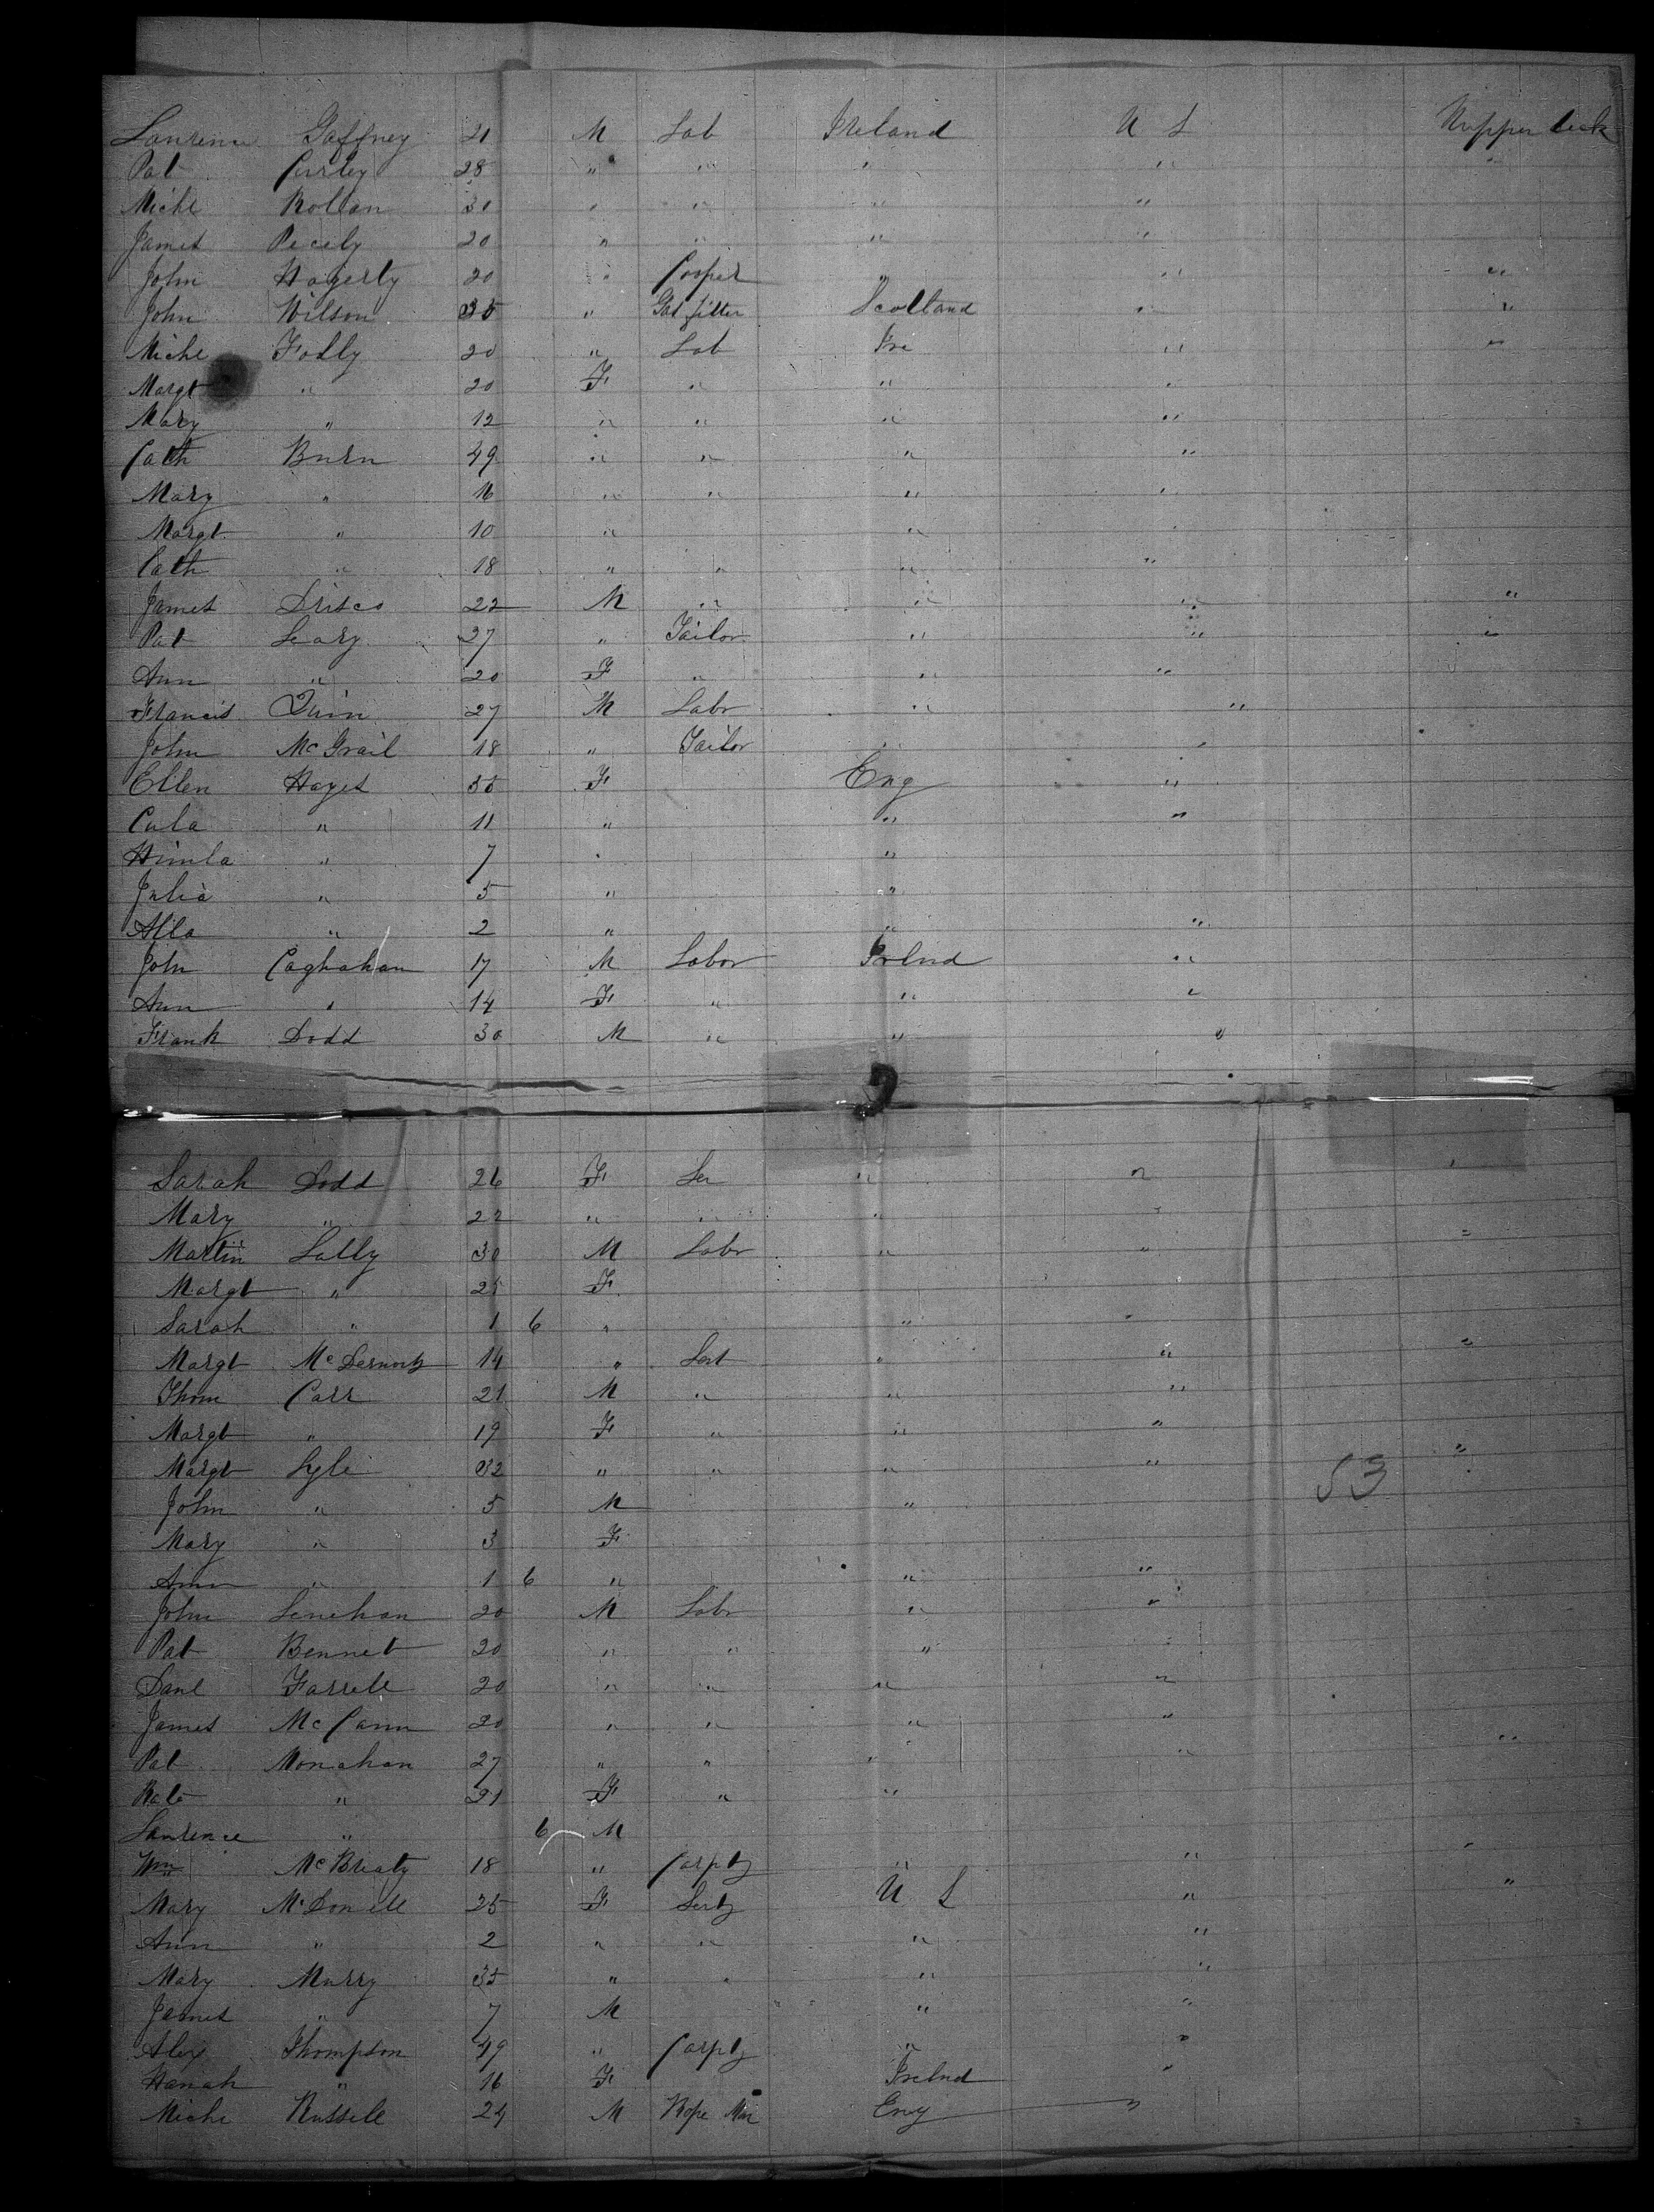 Laurence Gaffney 21 M Lab Ireland U S Upper Deck
Pat Curley 28 " " " " "
Michl 30 " " " "
James 20 " " " "
John Hagerty 20 " Cooper " " "
John Wilson 35 " Gas fitter Scotland " "
Michl Folly 20 " Lab Ire " "
Margt " 20 F " " "
Mary " 12 " " " "
Cath Burn 49 " " " "
Mary " 16 " " " "
Margt " 10 " " "
Cath " 18 " " " "
James Drisco 22 M " " " "
Pat Leary 27 " Tailor " " "
Ann " 20 F " " "
Francis Quin 27 M Labr " "
John McGrail 18 " Tailor " "
Ellen Hayes 35 F Eng "
" 11 " " "
" 7 " "
Julia " 5 " "
" 2 " " "
John Caghahan 17 M Labor Irelnd "
Ann " 14 F " " "
Frank Dodd 30 M " " "
Sarah Dodd 26 F Ser " " "
Mary " 22 " " " "
Martin Lally 30 M Labr " " "
Margt " 25 F
Sarah " 1 6 " " "
Margt McDermott 14 " Sert " " "
Thom Carr 21 M " " "
Margt " 19 F " " "
Margt Lyle 32 " " " " 53 "
John " 5 M "
Mary " 3 F
Ann " 1 6 " " "
John Lenehan 20 M Labr " "
Pat Bennet 20 " " " "
Danl Farrell 20 " " " "
James McCann 20 " " " "
Pat Monahan 27 " " " " "
" 21 F " "
Laurence " 6 M
Wm 18 " " " "
Mary McDonell 25 F U S " "
Ann " 2 " " " "
Mary Murry 35 " " " "
James " 7 M " "
Alex Thompson 49 " " "
Hanah " 16 F Irelnd "
Michl Russell 24 M Rope Eng "